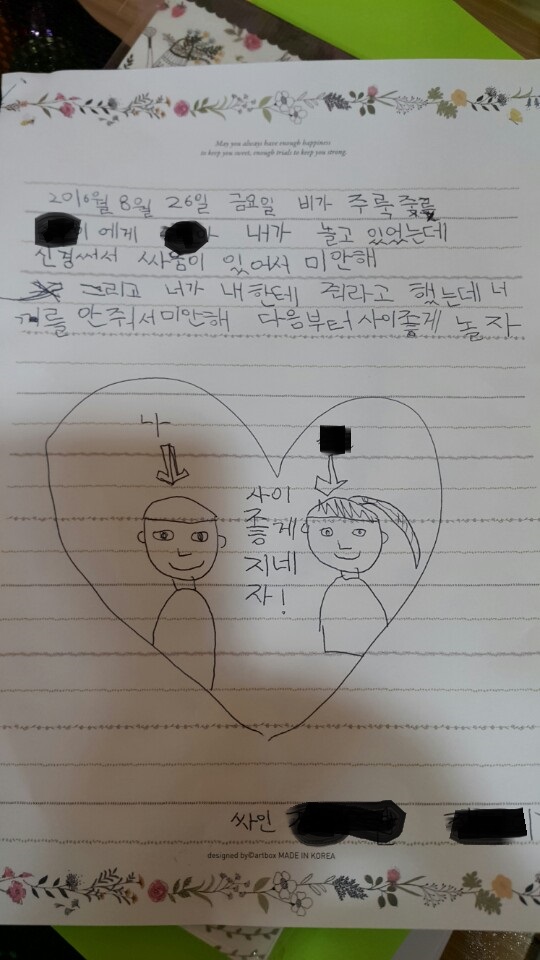 May you always have enough happiness
to keep you sweet, enough trials to keep you strong.
2016월 8월 26일 금요일 비가 주륵주륵
이에게 아 내가 놀고 있었는데
신경써서 싸움이 있어서 미안해
그리고 너가 내한테 줘라고 했는데 너
꺼를 안줘서 미안해 다음부터 사이좋게 놀자
나
사이
좋게
지네
자!
싸인
designed by©artbox MADE IN KOREA